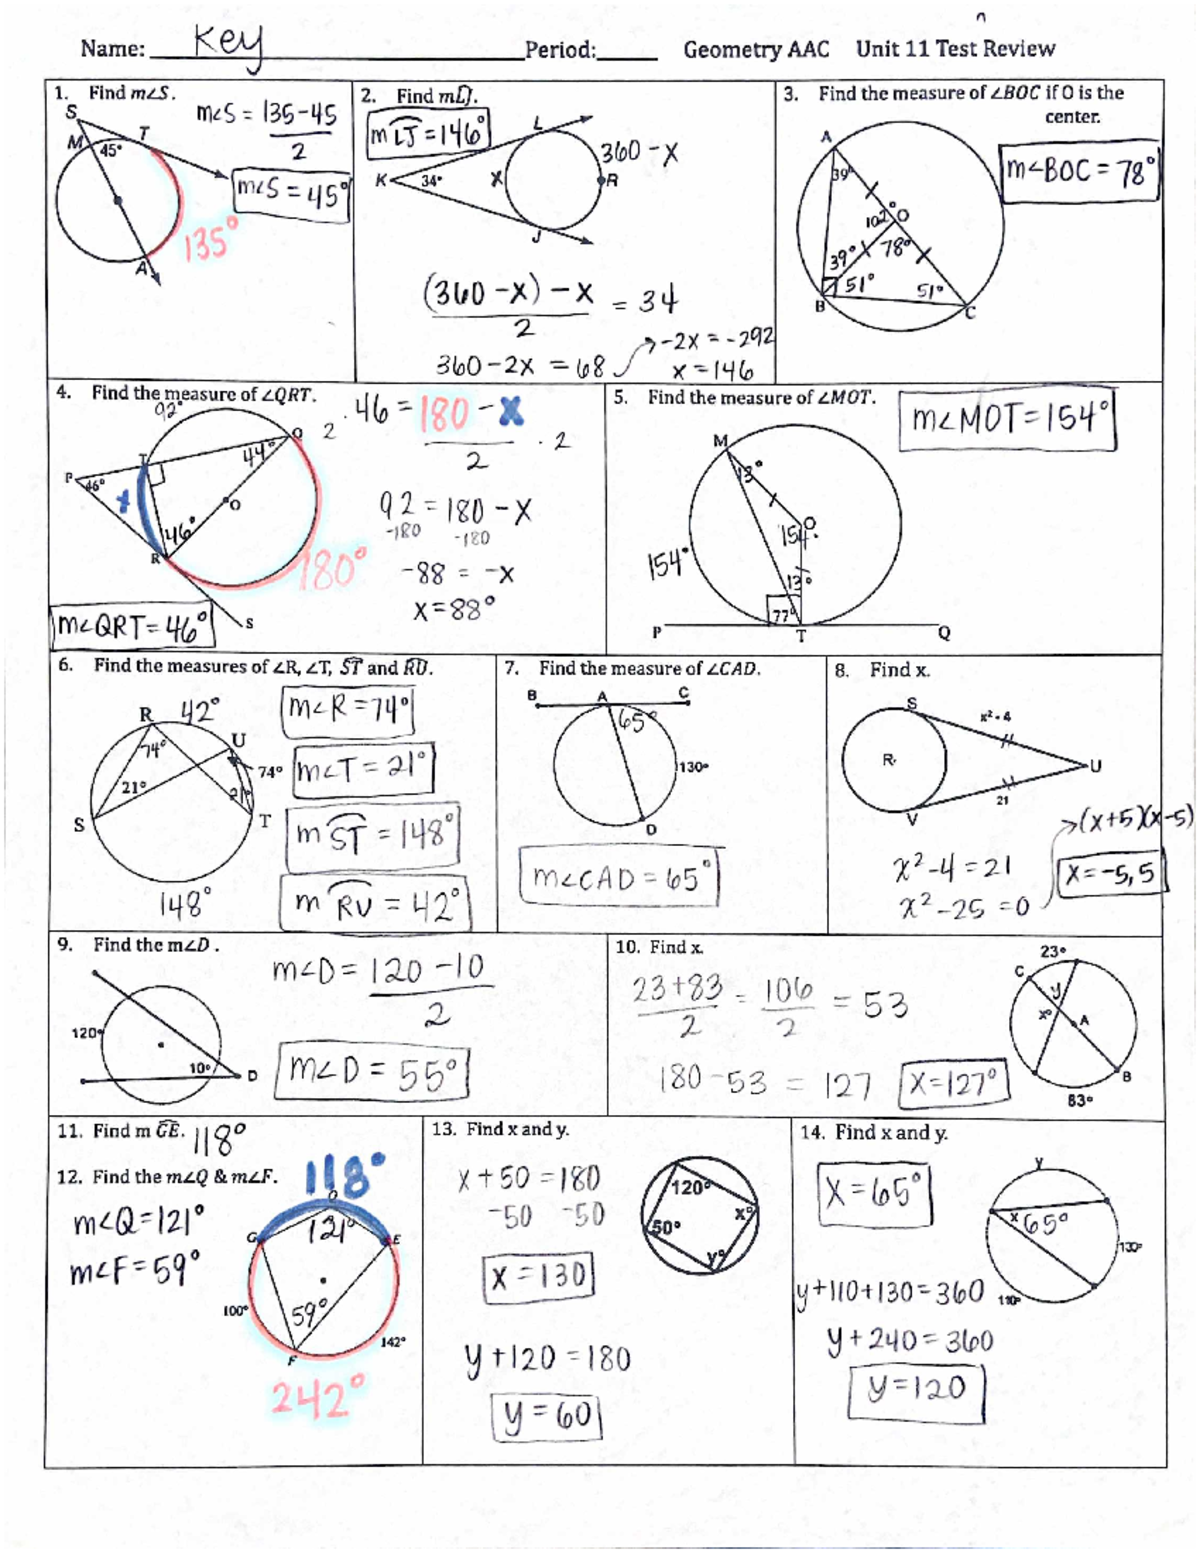 Name: Key Period: Geometry AAC Unit 11 Test Review
1. Find m∠S.
S
M
T
45°
A
135°
m∠S = 135-45
2
m∠S = 45°
2. Find mLJ.
mLJ = 146°
K
34°
L
X
R
J
360-x
(360-x)-x = 34
2
360-2x = 68
-2x = -292
x = 146
3. Find the measure of ∠BOC if O is the
center.
A
39°
102°
O
39°
78°
51°
51°
B
C
m∠BOC = 78°
4. Find the measure of ∠QRT.
92°
Q
44°
T
P
46°
x
O
46°
R
180°
S
m∠QRT = 46°
2 · 46 = 180-x · 2
2
92 = 180-x
-180 -180
-88 = -x
x = 88°
5. Find the measure of ∠MOT.
m∠MOT = 154°
M
13°
O
154°
154°
13°
77°
P
T
Q
6. Find the measures of ∠R, ∠T, ST and RU.
R
42°
U
74°
74°
21°
21°
S
T
148°
m∠R = 74°
m∠T = 21°
mST = 148°
mRU = 42°
7. Find the measure of ∠CAD.
B
A
C
65°
130°
D
m∠CAD = 65°
8. Find x.
S
x² - 4
R
U
21
V
x²-4 = 21
x²-25 = 0
(x+5)(x-5)
x = -5, 5
9. Find the m∠D.
120°
10°
D
m∠D = 120-10
2
m∠D = 55°
10. Find x.
23+83 = 106 = 53
2 2
180-53 = 127
x = 127°
23°
C
y
x°
A
B
83°
11. Find m GE. 118°
12. Find the m∠Q & m∠F.
m∠Q = 121°
m∠F = 59°
118°
Q
121°
G
E
100°
59°
142°
F
242°
13. Find x and y.
x+50 = 180
-50 -50
x = 130
y+120 = 180
y = 60
120°
50°
x°
y°
14. Find x and y.
x = 65°
y
x 65°
130°
110°
y+110+130 = 360
y+240 = 360
y = 120